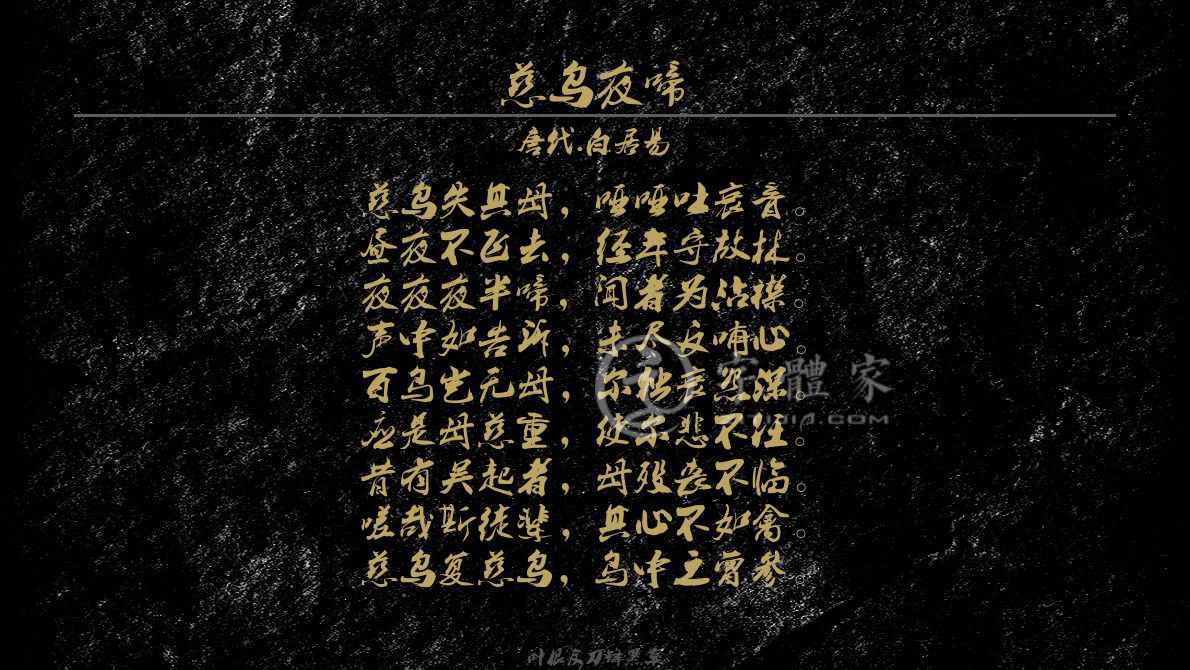 慈乌夜啼
唐代.白居易
慈乌失其母，哑哑吐哀音。
昼夜不飞去，经年守故林。
夜夜夜半啼，闻者为沾襟。
声中如告诉，未尽反哺心。
百鸟岂无母，尔独哀怨深。
应是母慈重，使尔悲不任。
昔有吴起者，母殁丧不临。
嗟哉斯徒辈，其心不如禽。
慈乌复慈乌，鸟中之曾参。
字體家